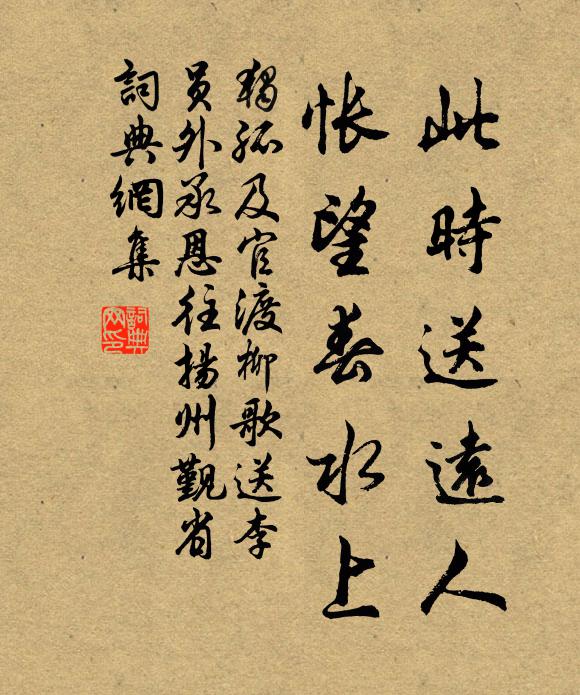 此時送遠人
悵望春水上
獨孤及官渡柳歌送李
員外承恩往揚州覲省
詞典網集
詞典
网印